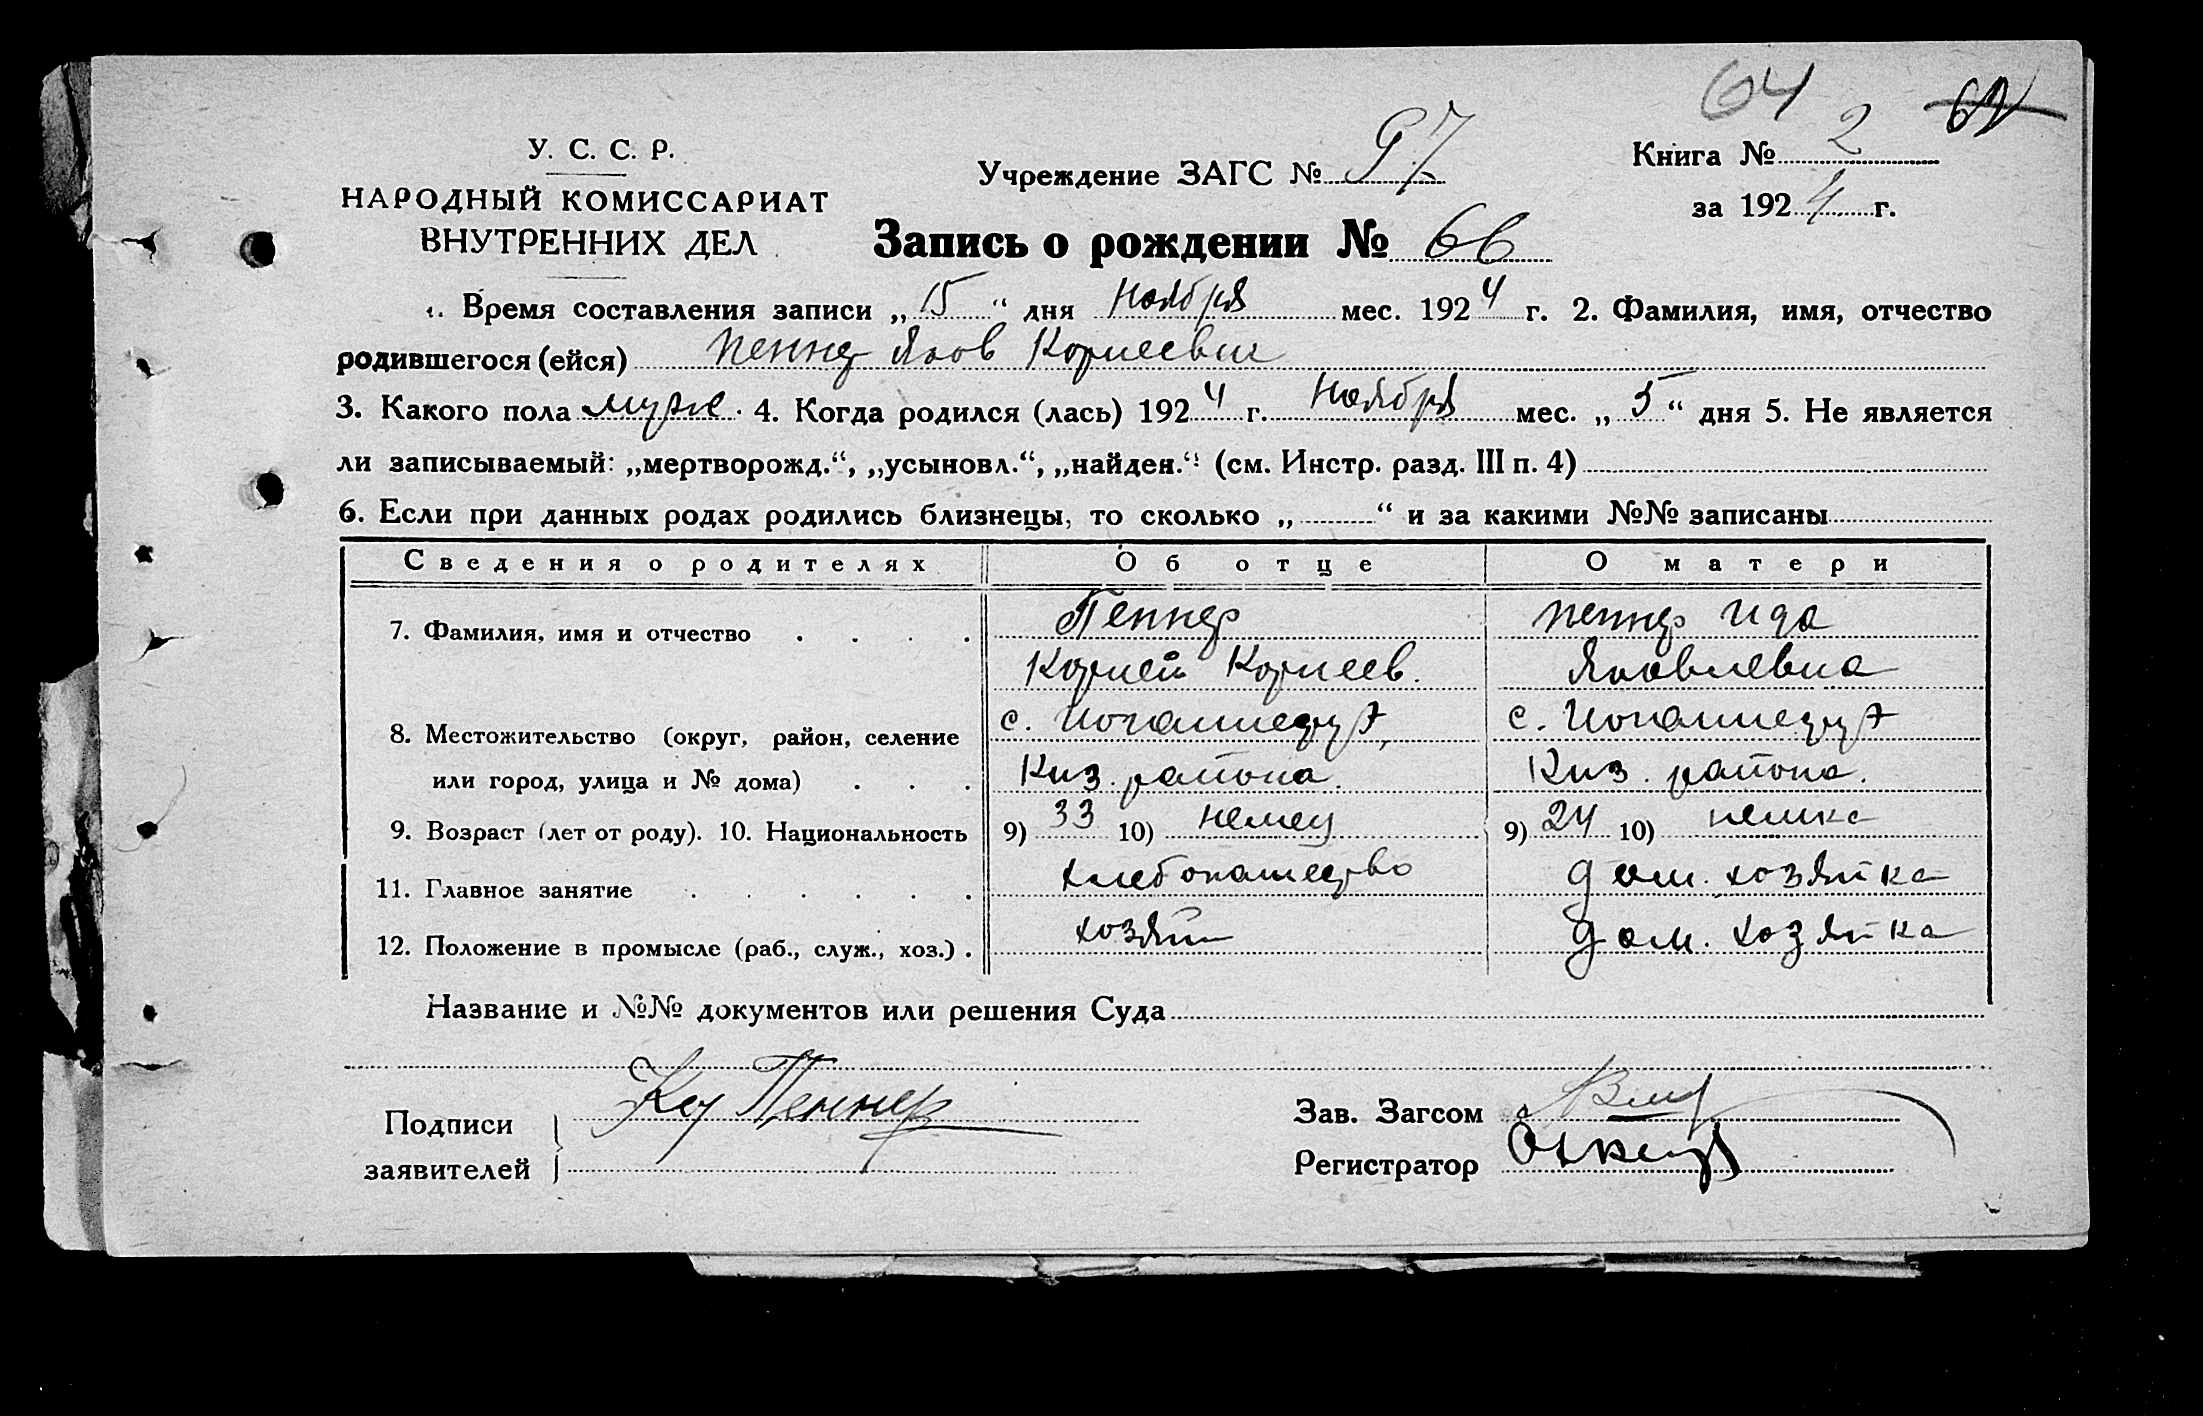 64 62
У. С. С. Р.
НАРОДНЫЙ КОМИССАРИАТ
ВНУТРЕННИХ ДЕЛ
Учреждение ЗАГС № 97
Книга № 2
за 1924 г.
Запись о рождении № 66
1. Время составления записи „15“ дня Ноября мес. 1924 г. 2. Фамилия, имя, отчество
родившегося (ейся) Пеннер Яков Корнеевич
3. Какого пола муж. 4. Когда родился (лась) 1924 г. Ноября мес. „5“ дня 5. Не является
ли записываемый: „мертворожд.“, „усыновл.“, „найден.“ (см. Инстр. разд. III п. 4)
6. Если при данных родах родились близнецы, то сколько „ “ и за какими №№ записаны
Сведения о родителях Об отце О матери
7. Фамилия, имя и отчество Пеннер Пеннер Ида
Корней Корнеев. Яковлевна
8. Местожительство (округ, район, селение с. с.
или город, улица и № дома) района. района.
9. Возраст (лет от роду). 10. Национальность 9) 33 10) немец 9) 24 10) немка
11. Главное занятие хлебопашество дом. хозяйка
12. Положение в промысле (раб., служ., хоз.) хозяин дом. хозяйка
Название и №№ документов или решения Суда
Подписи Кор Пеннер
заявителей
Зав. Загсом
Регистратор